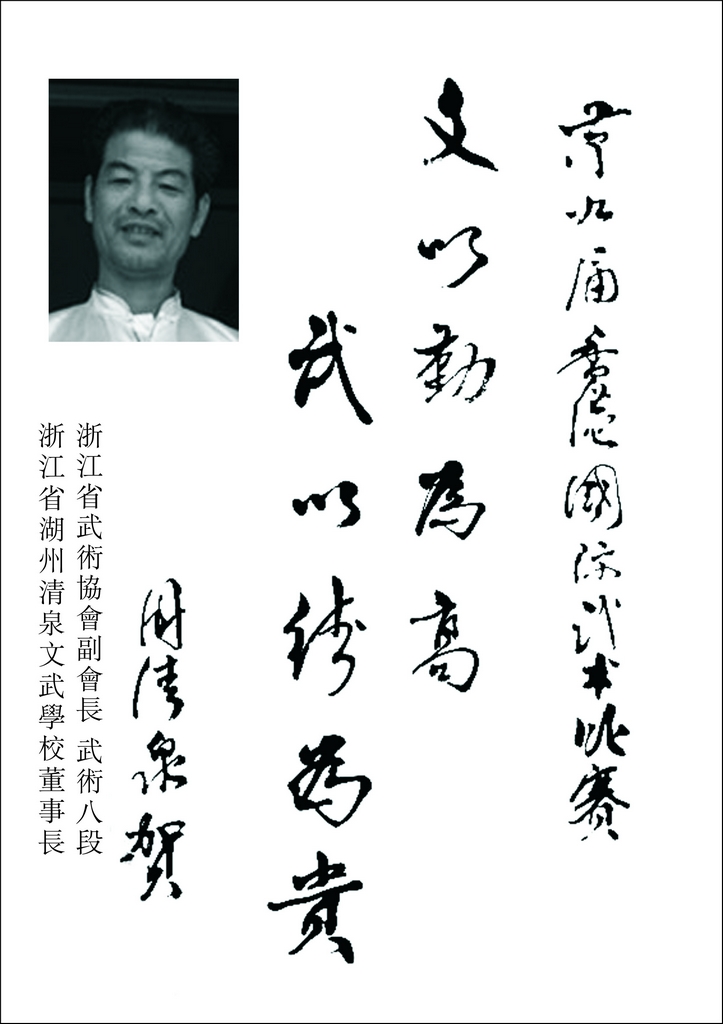 第九届香港國际武术比赛
文以勤為高
武以 為贵
周清泉贺
浙江省武術協會副會長 武術八段
浙江省湖州清泉文武學校董事長